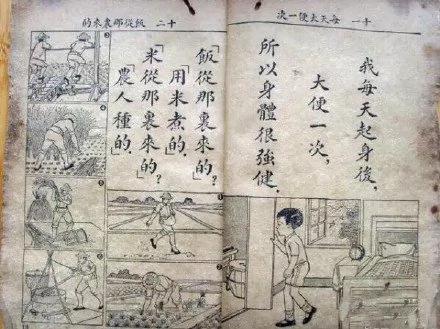 十一 每天大便一次
我每天起身後,
大便一次,
所以身體很強健.
十二 飯從那裏來的
「飯從那裏來的」?
「用米煮的」.
「米從那裏來的」?
「農人種的」.